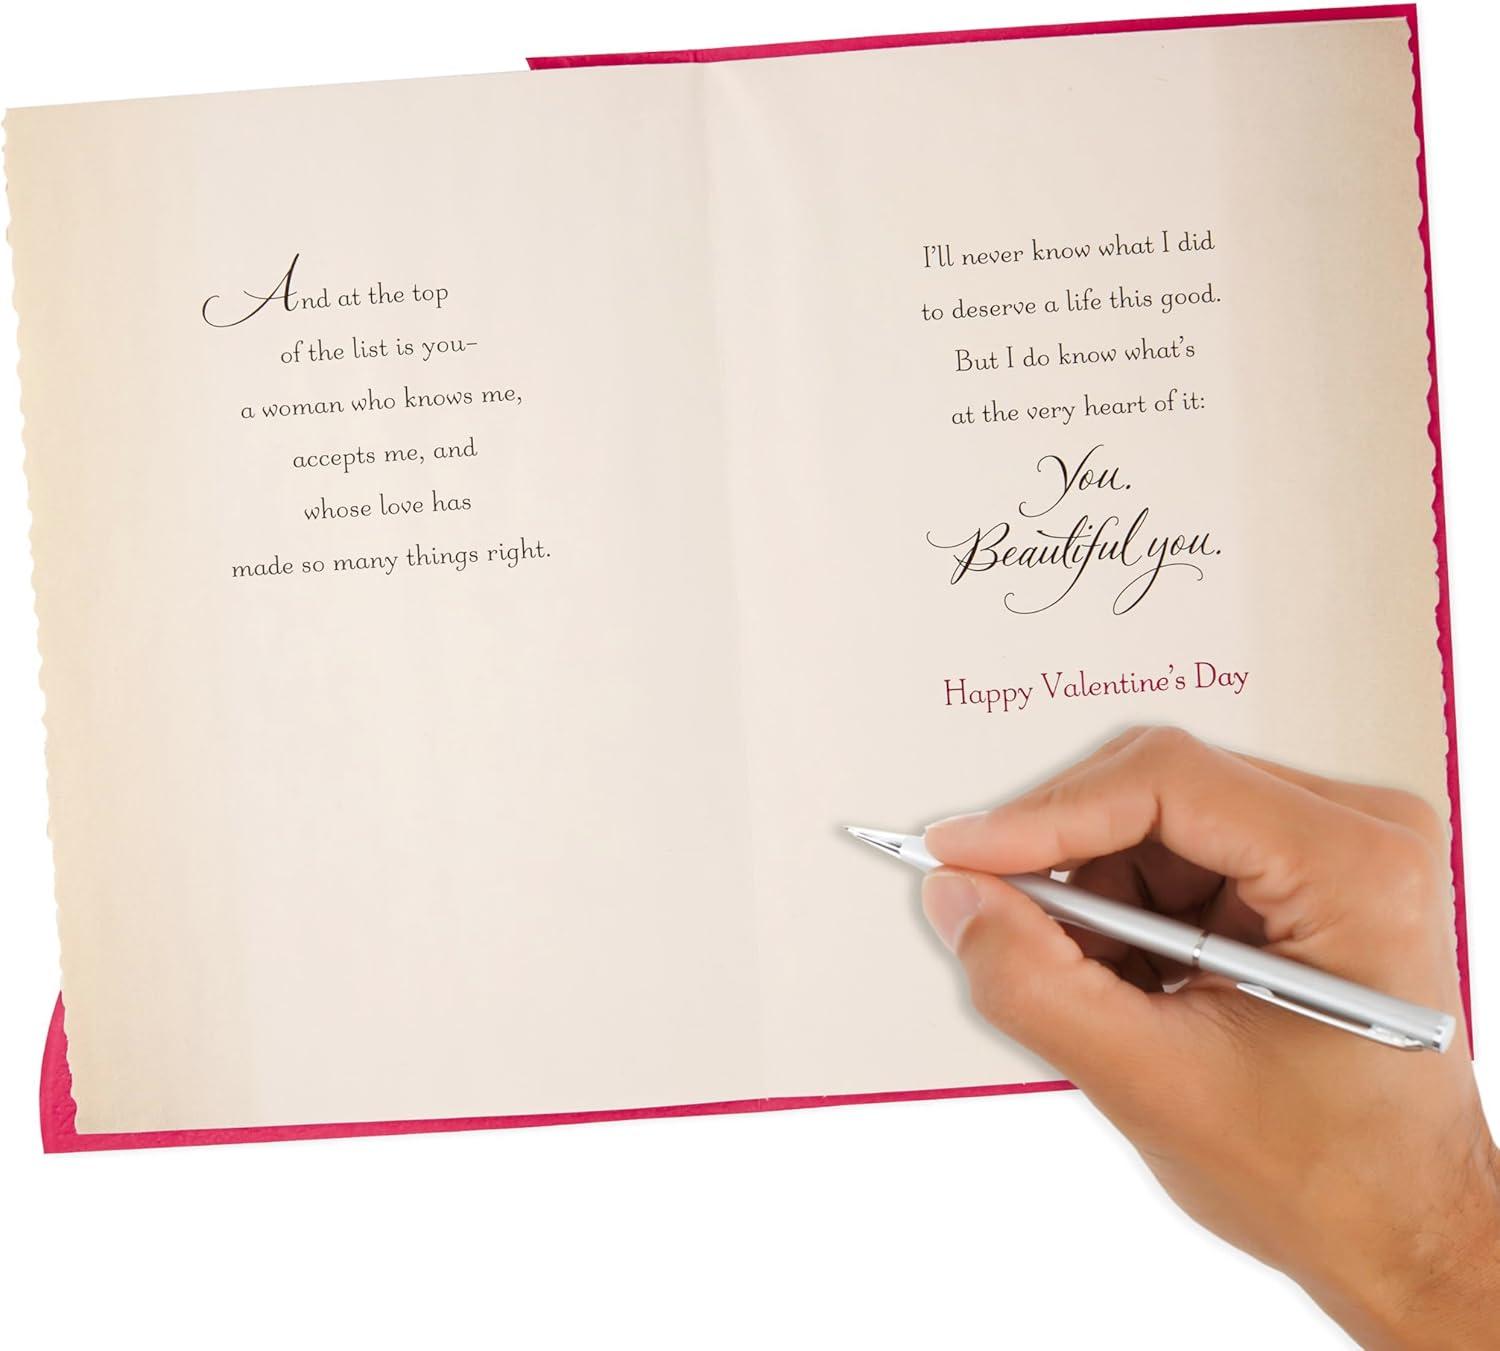 And at the top
of the list is you–
a woman who knows me,
accepts me, and
whose love has
made so many things right.
I'll never know what I did
to deserve a life this good.
But I do know what's
at the very heart of it:
You.
Beautiful you.
Happy Valentine's Day